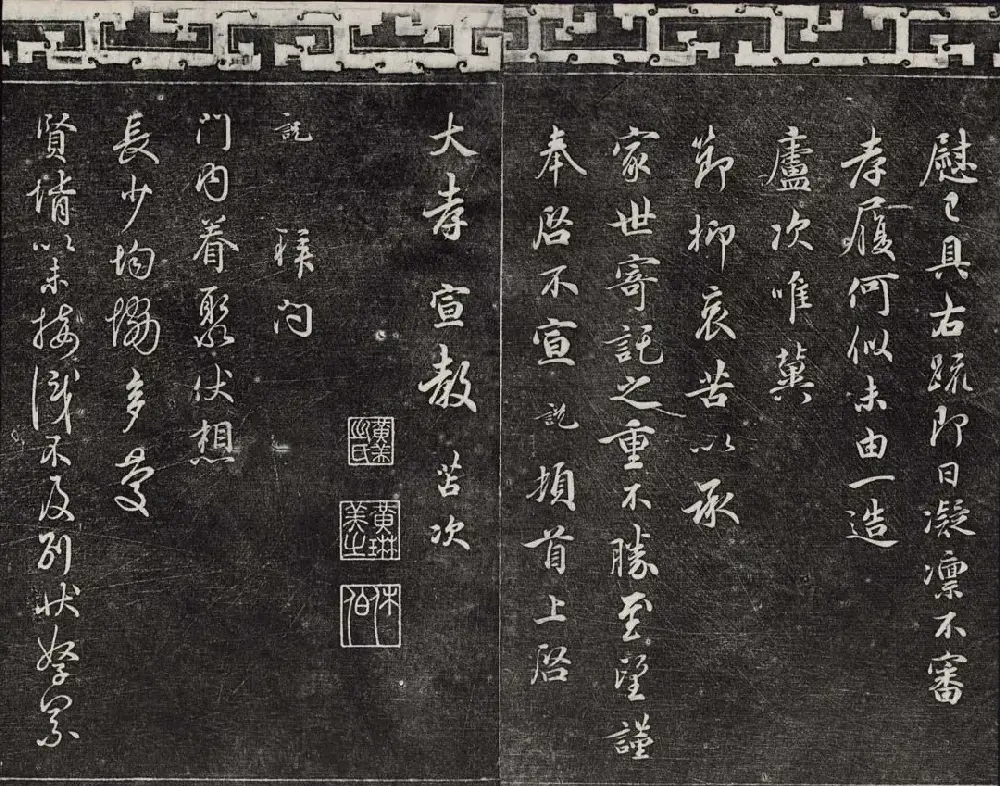 慰已具右疏即日凝凛不審
孝履何似未由一造
廬次唯冀
節抑哀苦以承
家世寄託之重不勝至望謹
奉啓不宣 説 頓首上啓
大孝宣教 苫次
黄美之氏
黄琳美之
休伯
説 拜問
門内眷聚伏想
長少均多慶
賢壻以未接識不及别状孥累